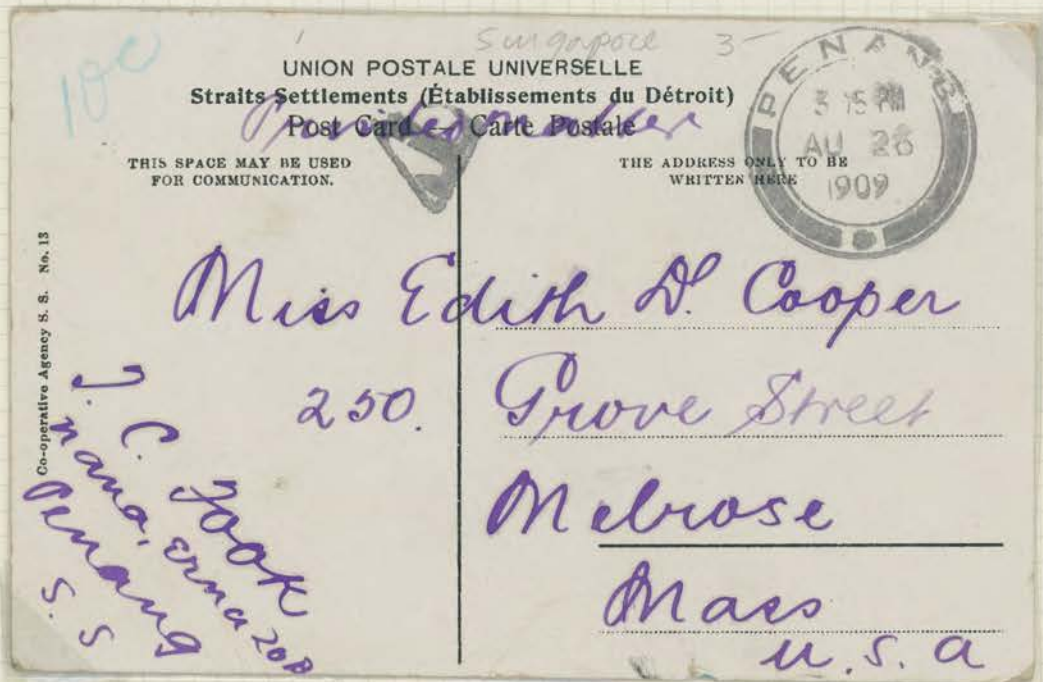 10c
Singapore 3-
UNION POSTALE UNIVERSELLE
Straits Settlements (Établissements du Détroit)
Post Card — Carte Postale
Printed matter
THIS SPACE MAY BE USED
FOR COMMUNICATION.
THE ADDRESS ONLY TO BE
WRITTEN HERE
PENANG
3 15 PM
AU 26
1909
Co-operative Agency S. S. No. 13
Miss Edith D. Cooper
250. Grove Street
Melrose
Mass
U.S.A
J. C. Fook
Penang
S. S